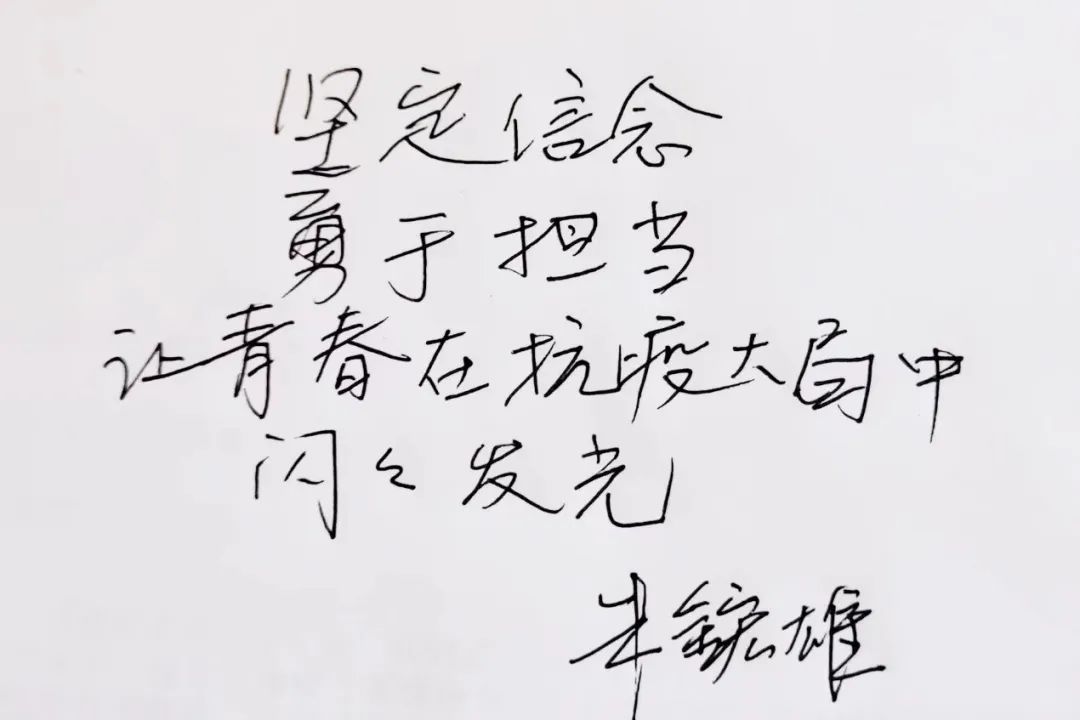 坚定信念
勇于担当
让青春在抗疫大局中
闪々发光
牛鋐雄